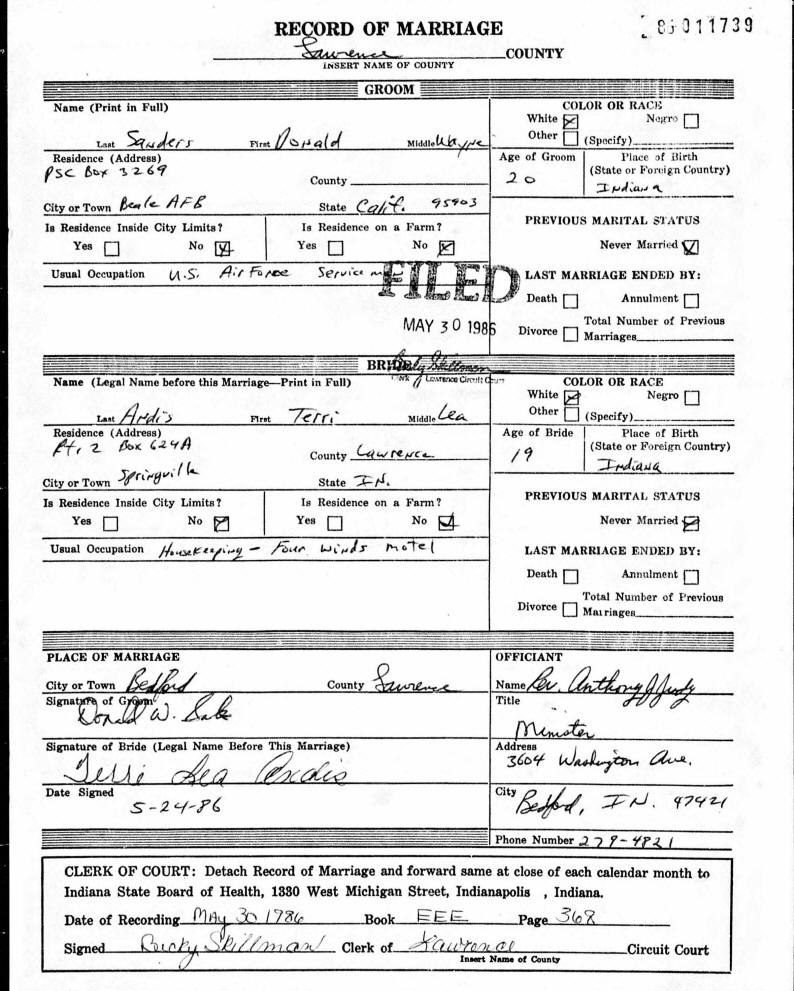 RECORD OF MARRIAGE
86 011739
Lawrence COUNTY
INSERT NAME OF COUNTY
GROOM
Name (Print in Full)
Last Sanders First Donald Middle Wayne
COLOR OR RACE
White ☒ Negro ☐
Other ☐ (Specify)
Residence (Address)
PSC Box 3269
County
City or Town Beale AFB State Calif. 95903
Age of Groom
20
Place of Birth
(State or Foreign Country)
Indiana
Is Residence Inside City Limits?
Yes ☐ No ☒
Is Residence on a Farm?
Yes ☐ No ☒
PREVIOUS MARITAL STATUS
Never Married ☒
Usual Occupation U.S. Air Force Service
FILED
MAY 30 1986
LAST MARRIAGE ENDED BY:
Death ☐ Annulment ☐
Divorce ☐ Total Number of Previous
Marriages
BRIDE
Becky Skillman
Clerk of Lawrence Circuit Court
Name (Legal Name before this Marriage—Print in Full)
Last Ardis First Terri Middle Lea
COLOR OR RACE
White ☒ Negro ☐
Other ☐ (Specify)
Residence (Address)
Rt. 2 Box 624A
County Lawrence
City or Town Springville State IN.
Age of Bride
19
Place of Birth
(State or Foreign Country)
Indiana
Is Residence Inside City Limits?
Yes ☐ No ☒
Is Residence on a Farm?
Yes ☐ No ☒
PREVIOUS MARITAL STATUS
Never Married ☒
Usual Occupation Housekeeping - Four Winds Motel
LAST MARRIAGE ENDED BY:
Death ☐ Annulment ☐
Divorce ☐ Total Number of Previous
Marriages
PLACE OF MARRIAGE
City or Town Bedford County Lawrence
Signature of Groom
Donald W.
Signature of Bride (Legal Name Before This Marriage)
Terri Lea Ardis
Date Signed
5-24-86
OFFICIANT
Name Rev. Anthony J Judy
Title
Minister
Address
3604 Washington Ave.
City Bedford, IN. 47421
Phone Number 279-4821
CLERK OF COURT: Detach Record of Marriage and forward same at close of each calendar month to
Indiana State Board of Health, 1330 West Michigan Street, Indianapolis , Indiana.
Date of Recording May 30 1986 Book EEE Page 368
Signed Becky Skillman Clerk of Lawrence Circuit Court
Insert Name of County